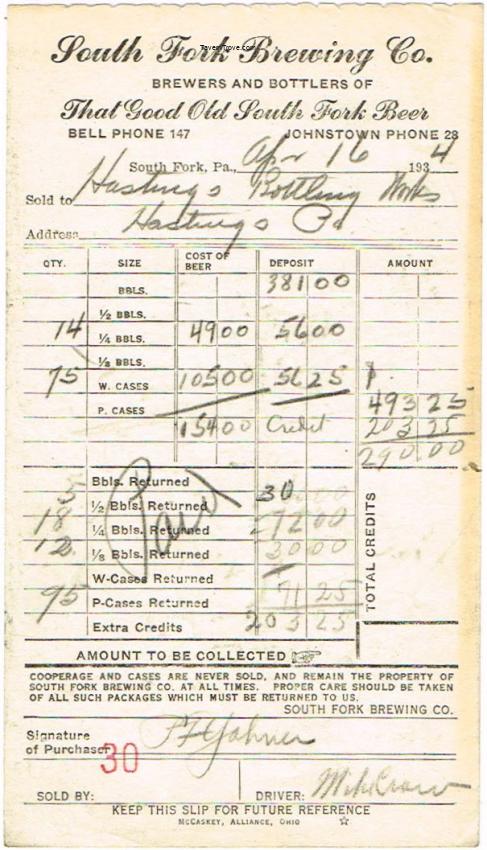 TavernTrove.com
South Fork Brewing Co.
BREWERS AND BOTTLERS OF
That Good Old South Fork Beer
BELL PHONE 147 JOHNSTOWN PHONE 28
South Fork, Pa., Apr 16 1934
Sold to Hastings Bottling Works
Address Hastings Pa
QTY. SIZE COST OF BEER DEPOSIT AMOUNT
BBLS. 381 00
½ BBLS.
14 ¼ BBLS. 49 00 56 00
⅛ BBLS.
75 W. CASES 105 00 56 25
493 25
P. CASES 154 00 Credit 203 25
290 00
Bbls. Returned 30
½ Bbls. Returned
18 ¼ Bbls. Returned 72 00
12 ⅛ Bbls. Returned 30 00
W-Cases Returned
95 P-Cases Returned 71 25
Extra Credits 203 25
Paid
TOTAL CREDITS
AMOUNT TO BE COLLECTED
COOPERAGE AND CASES ARE NEVER SOLD, AND REMAIN THE PROPERTY OF
SOUTH FORK BREWING CO. AT ALL TIMES. PROPER CARE SHOULD BE TAKEN
OF ALL SUCH PACKAGES WHICH MUST BE RETURNED TO US.
SOUTH FORK BREWING CO.
Signature
of Purchaser
30
SOLD BY: DRIVER:
KEEP THIS SLIP FOR FUTURE REFERENCE
MCCASKEY, ALLIANCE, OHIO